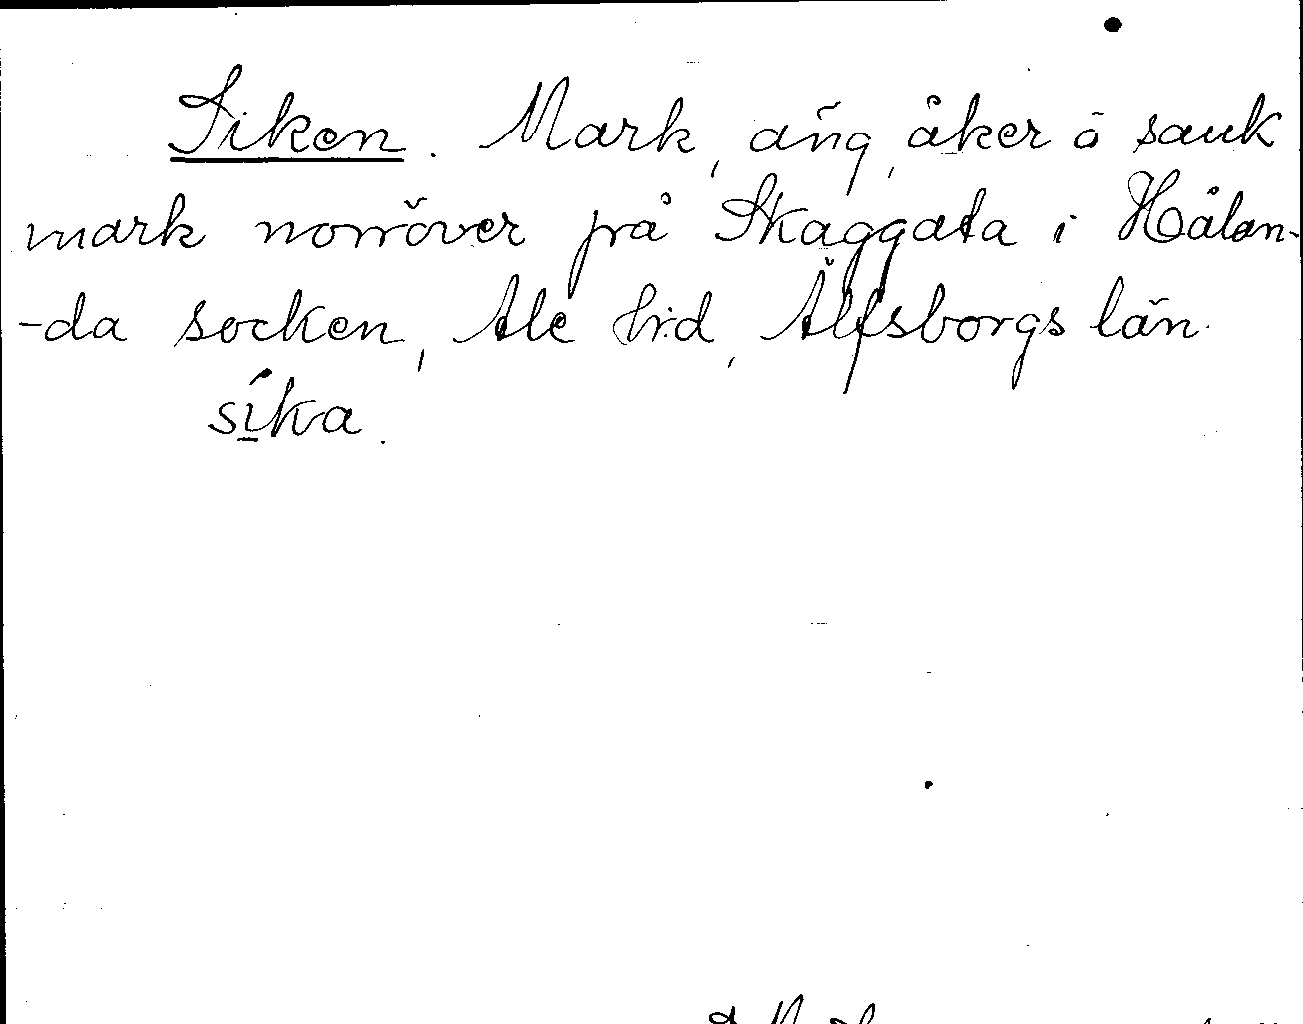 Siken. Mark, äng, åker ö sauk
mark norröver frå Skaggata i Hålan-
-da socken, Ale hrd, Älfsborgs län.
síka.